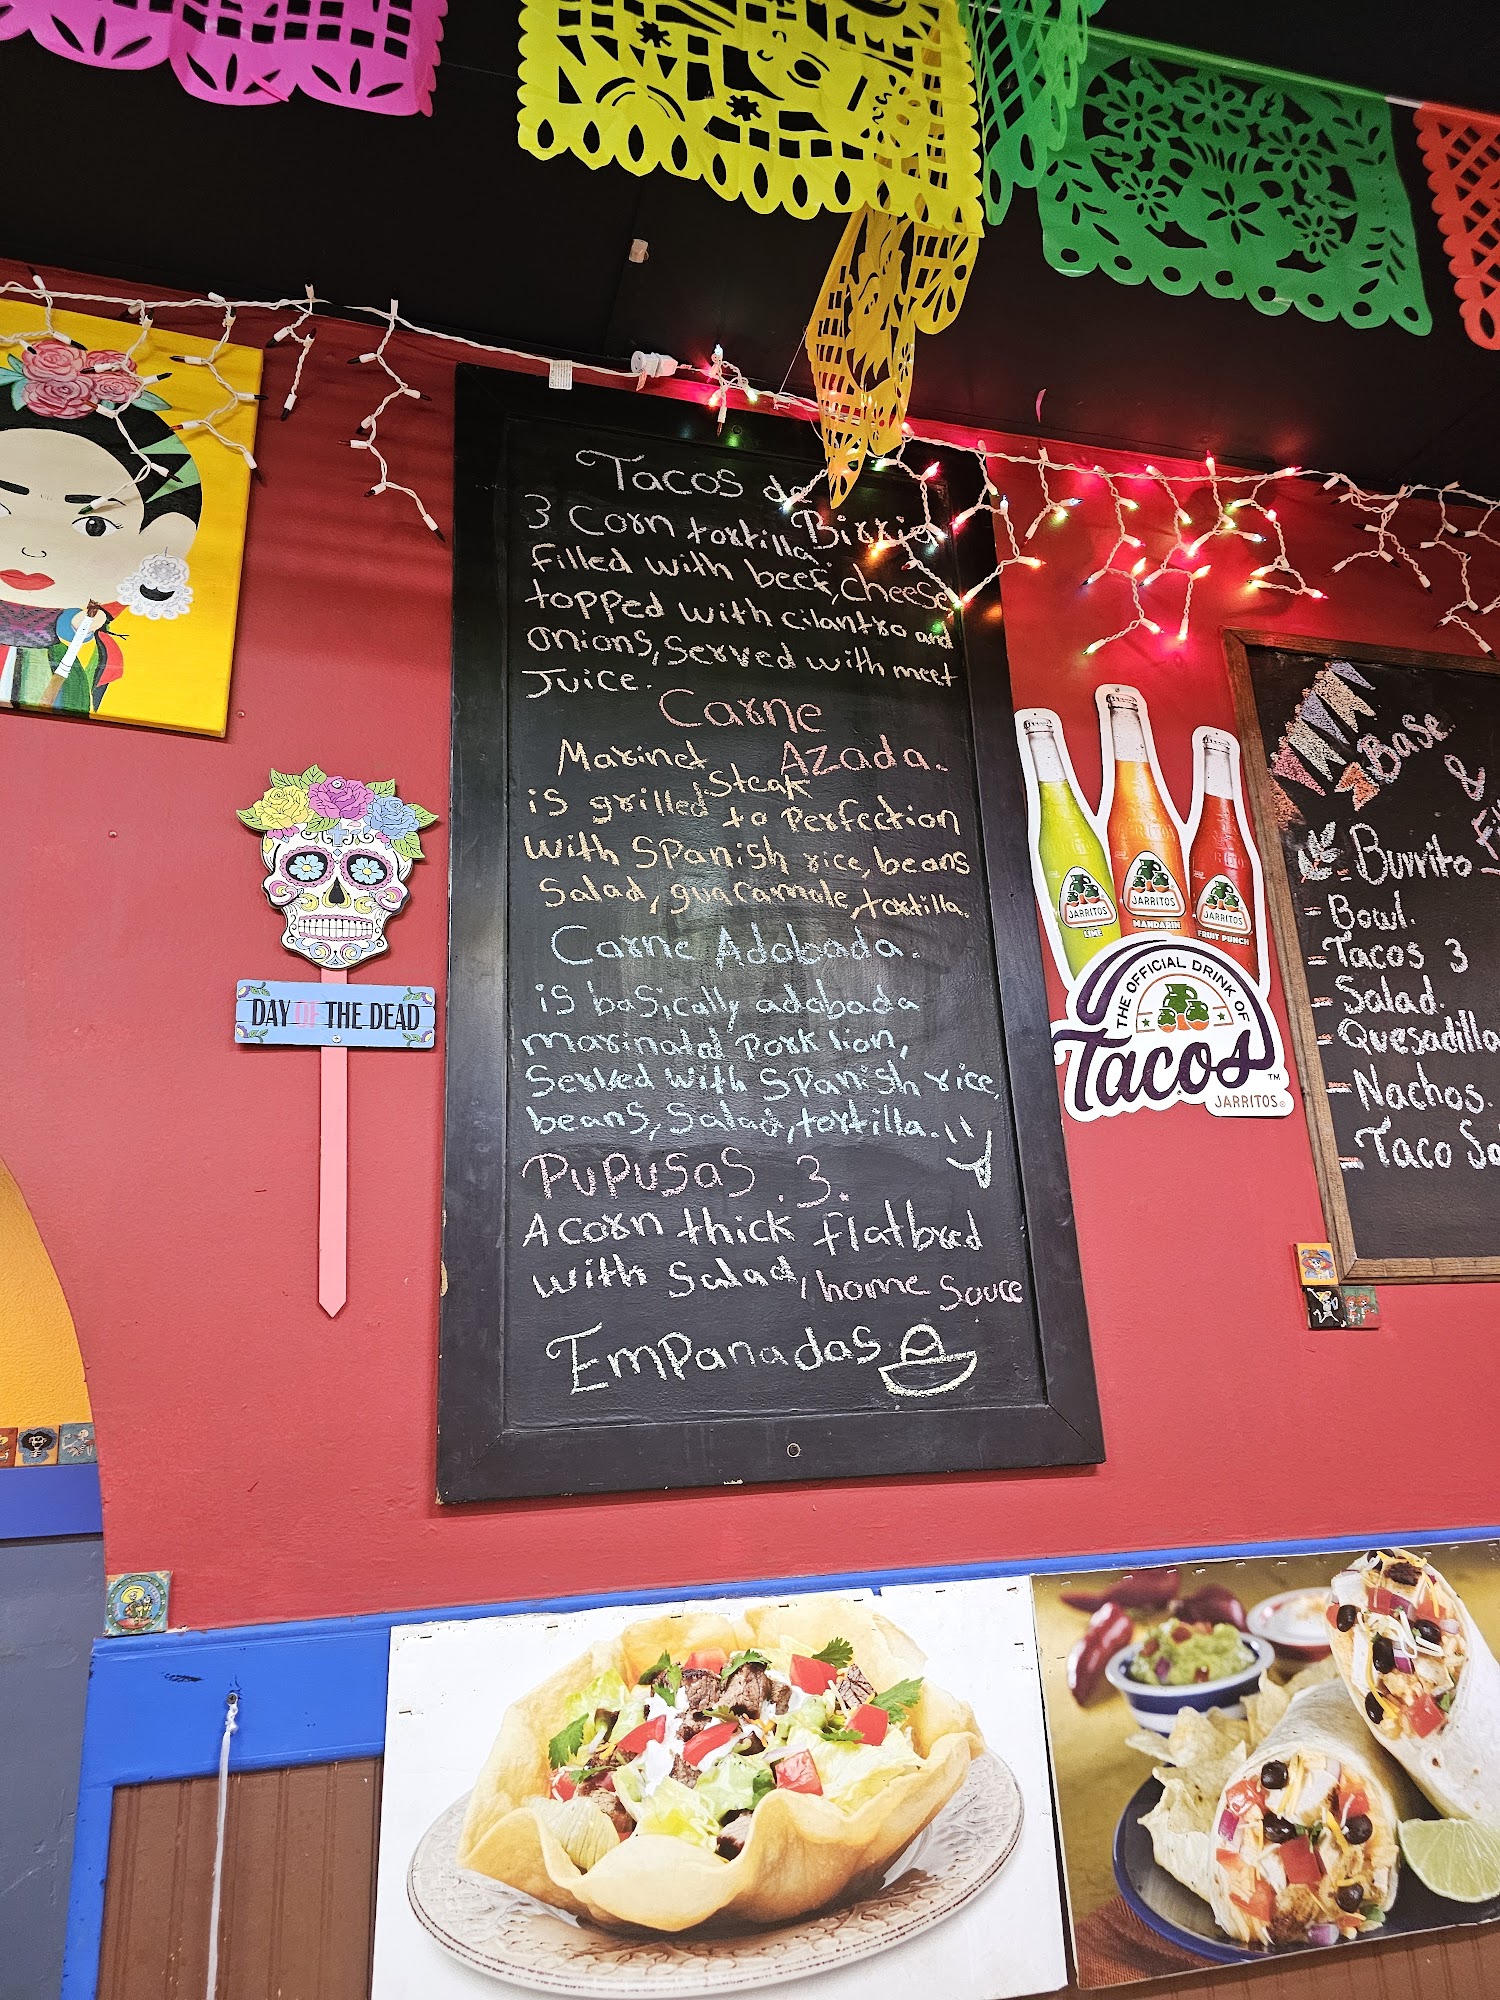 Tacos de
Birria
3 Corn tortilla.
filled with beef, cheese
topped with cilantro and
onions, served with meet
Juice.
Carne
AZada.
Marinet Steak
is grilled to Perfection
with SPanish rice, beans
Salad, guacamole, tortilla.
Carne Adobada.
is basically adobada
marinated Pork lion,
Served with SPanish rice,
beans, Salad, tortilla.
PUPUSaS .3.
A corn thick flatbred
with Salad, home Souce
EmPanadas
DAY OF THE DEAD
JARRITOS
LIME
JARRITOS
MANDARIN
JARRITOS
FRUIT PUNCH
THE OFFICIAL DRINK OF
Tacos™
JARRITOS®
Base
&
- Burrito
- Bowl.
- Tacos 3
- Salad.
- Quesadilla
- Nachos.
- Taco Sa